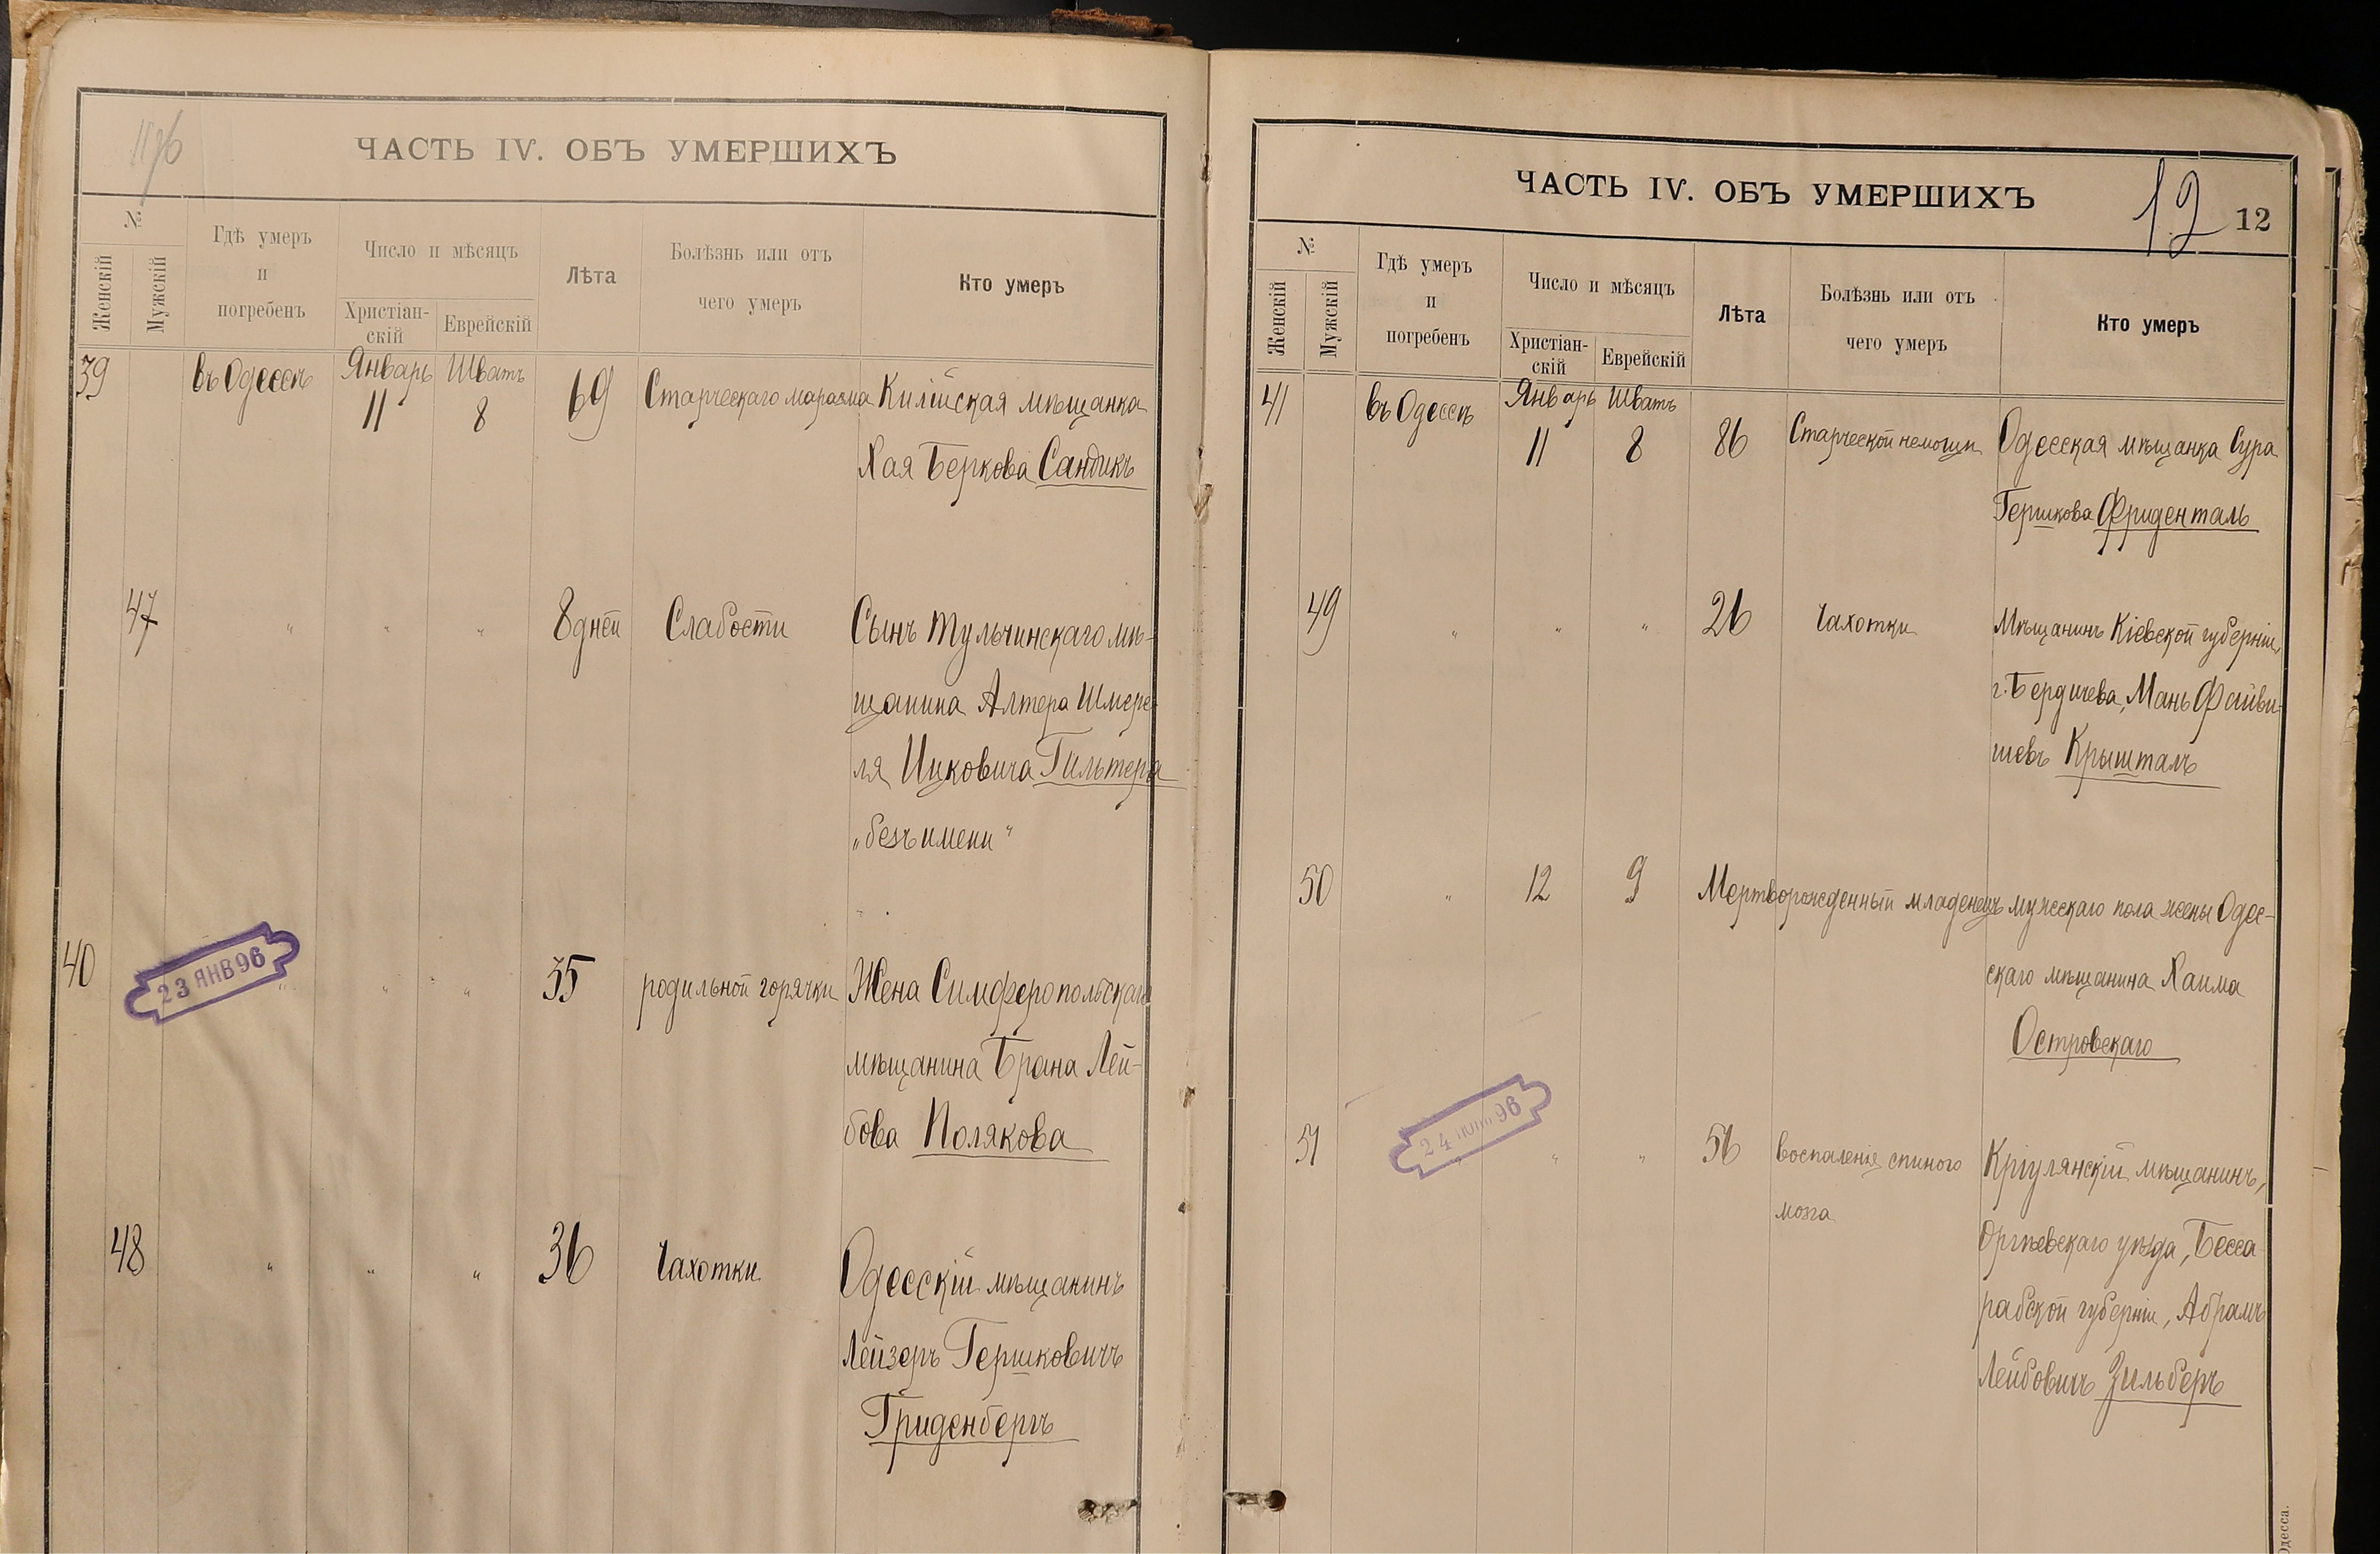 ЧАСТЬ IV. ОБЪ УМЕРШИХЪ
№
Женскій
Мужскій
Гдѣ умеръ
и
погребенъ
Число и мѣсяцъ
Христіан-
скій
Еврейскій
Лѣта
Болѣзнь или отъ
чего умеръ
Кто умеръ
39 въ Одессѣ Январь Шватъ 69 Старческаго маразма Килійская мѣщанка
11 8
Хая Беркова Сандикъ
47 " " " 8 дней Слабости Сынъ Тульчинскаго мѣ-
щанина Алтера Шмере-
ля Ицковича Гильтера
„безъ имени"
40 23 ЯНВ 96 " " " 35 родильной горячки Жена Симферопольскаго
мѣщанина Брана Лей-
бова Полякова
48 " " " 36 Чахотки Одесскій мѣщанинъ
Лейзеръ Гершковичъ
Гриденбергъ
ЧАСТЬ IV. ОБЪ УМЕРШИХЪ
12
12
№
Женскій
Мужскій
Гдѣ умеръ
и
погребенъ
Число и мѣсяцъ
Христіан-
скій
Еврейскій
Лѣта
Болѣзнь или отъ
чего умеръ
Кто умеръ
41 въ Одессѣ Январь Шватъ
11 8 86 Старческой немощи Одесская мѣщанка Сура
Гершкова Фриденталь
49 " " " 26 Чахотки Мѣщанинъ Кіевской губерніи,
г. Бердичева, Мань Файви-
шевъ Крышталь
50 " 12 9 Мертворожденный младенецъ мужескаго пола жены Одес-
скаго мѣщанина Хаима
Островскаго
24 96
51 " " " 56 воспаленіе спиного Кріулянскій мѣщанинъ,
мозга
Оргѣевскаго уѣзда, Бесса-
рабской губерніи, Абрамъ
Лейбовичъ Зильберъ
Одесса.